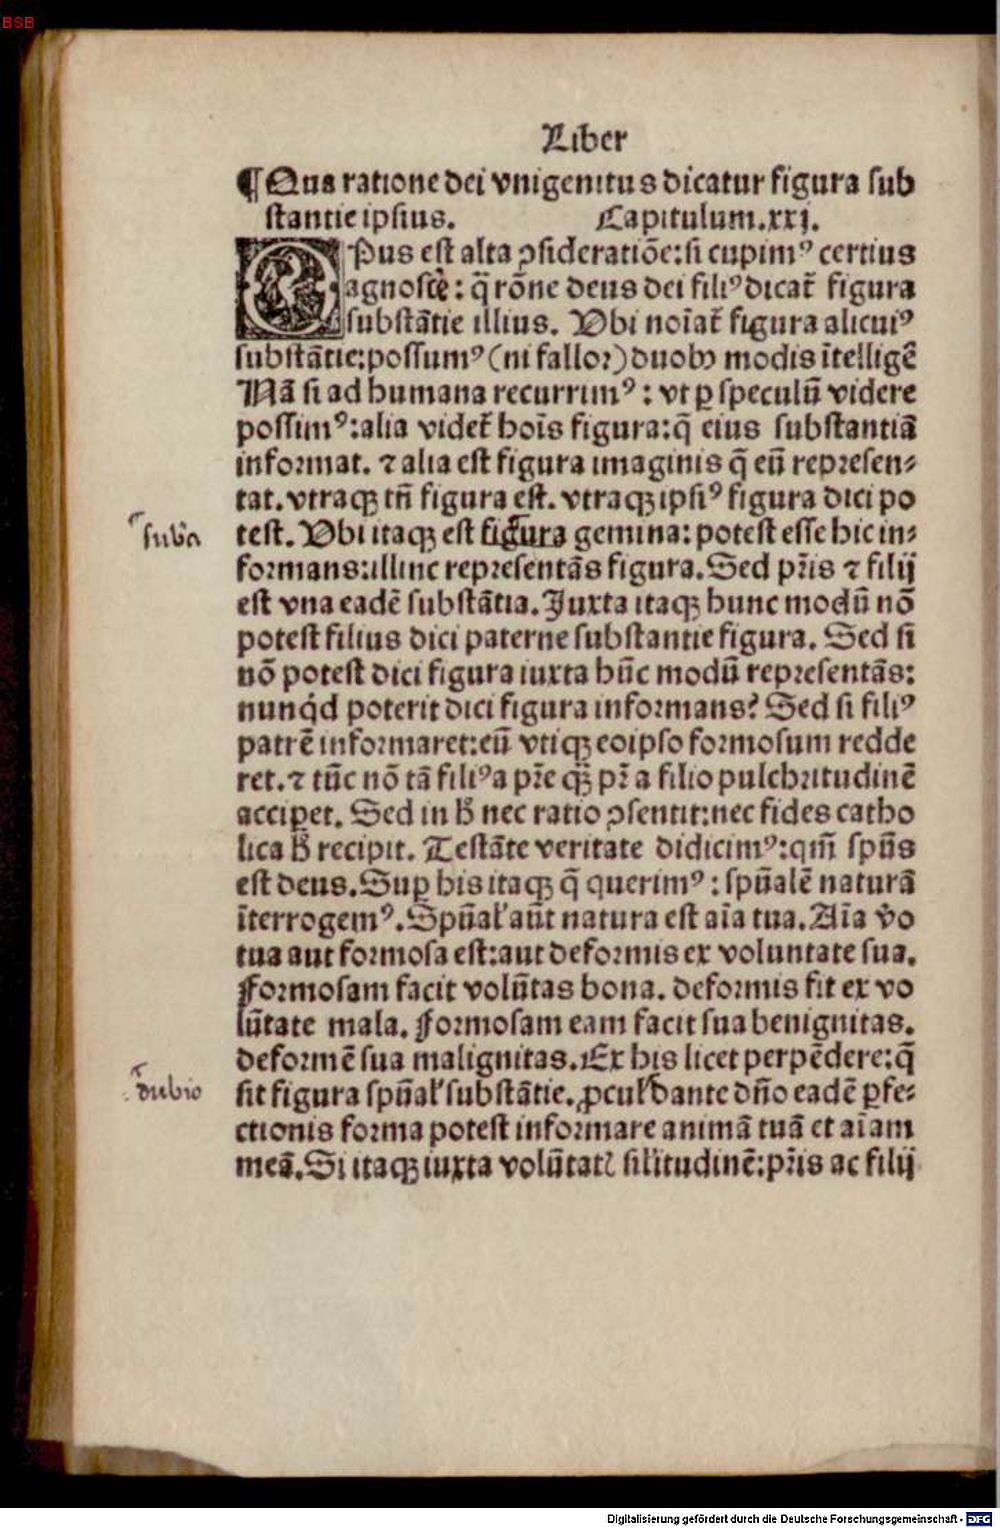 BSB
Liber
¶ Qua ratione dei vnigenitus dicatur figura sub
stantie ipsius. Capitulum.xxj.
OPus est alta ꝯsideratiõe:si cupimꝰ certius
agnoscẽ: q̃ rõne deus dei filiꝰ dicat̃ figura
substãtie illius. Vbi noĩat̃ figura alicuiꝰ
substãtie:possumꝰ (ni fallor) duobꝫ modis ĩtelligẽ
Nã si ad humana recurrimꝰ: vt ꝑ speculũ videre
possimꝰ:alia videt̃ hoĩs figura:q̃ eius substantiã
informat. ⁊ alia est figura imaginis q̃ eũ represen⸗
tat. vtraqꝫ tñ figura est. vtraqꝫ ipsiꝰ figura dici po
test. Vbi itaqꝫ est figura gemina: potest esse hic in⸗
formans:illinc representãs figura. Sed pr̃is ⁊ filij
est vna eadẽ substãtia. Iuxta itaqꝫ hunc modũ nõ
potest filius dici paterne substantie figura. Sed si
nõ potest dici figura iuxta hũc modũ representãs:
nunqd poterit dici figura informans? Sed si filiꝰ
patrẽ informaret:eũ vtiqꝫ eoipso formosum redde
ret. ⁊ tũc nõ tã filiꝰ a pr̃e qꝫ̃ pr̃ a filio pulchritudinẽ
acciꝑet. Sed in hͦ nec ratio ꝯsentit:nec fides catho
lica hͦ recipit. Testãte veritate didicimꝰ:qm̃ spũs
est deus. Suꝑ his itaqꝫ q̃ querimꝰ: spũalẽ naturã
ĩterrogemꝰ. Spũal' aũt natura est aĩa tua. Aĩa v̊o
tua aut formosa est:aut deformis ex voluntate sua.
Formosam facit volũtas bona. deformis fit ex vo
lũtate mala. Formosam eam facit sua benignitas.
deformẽ sua malignitas. Ex his licet perpẽdere:q̃
sit figura spũal' substãtie. ꝓcul' dante dño eadẽ ꝑfe⸗
ctionis forma potest informare animã tuã et aĩam
meã. Si itaqꝫ iuxta volũtatꝭ sil'itudinẽ:pr̃is ac filij
dubio
Digitalisierung gefördert durch die Deutsche Forschungsgemeinschaft - DFG